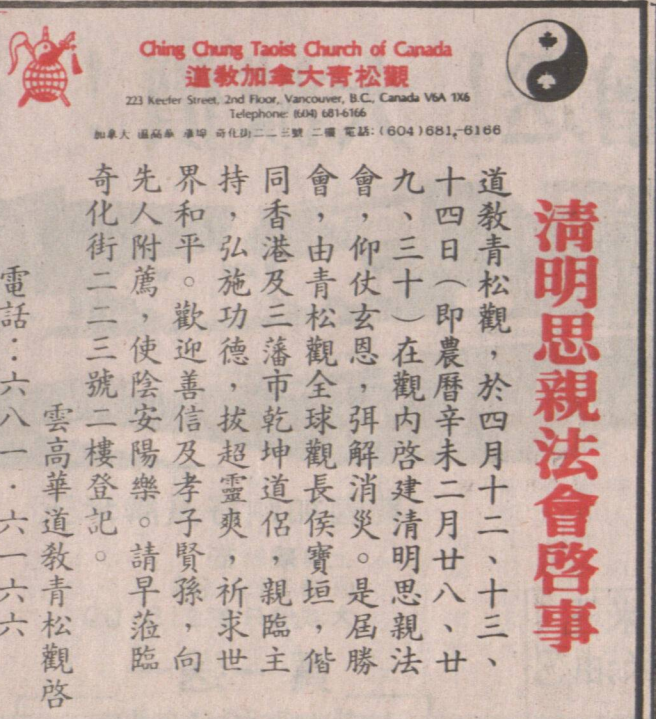 Ching Chung Taoist Church of Canada
道教加拿大青松觀
223 Keefer Street, 2nd Floor, Vancouver, B.C., Canada V6A 1X6
Telephone: (604) 681-6166
加拿大 溫哥華 華埠 奇化街二二三號 二樓 電話:(604)681-6166
清明思親法會啓事
道教青松觀,於四月十二、十三、
十四日(即農曆辛未二月廿八、廿
九、三十)在觀内啓建清明思親法
會,仰仗玄恩,弭解消災。是屆勝
會,由青松觀全球觀長侯寶垣,偕
同香港及三藩市乾坤道侶,親臨主
持,弘施功德,拔超靈爽,祈求世
界和平。歡迎善信及孝子賢孫,向
先人附薦,使陰安陽樂。請早蒞臨
奇化街二二三號二樓登記。
雲高華道教青松觀啓
電話:六八一.六一六六